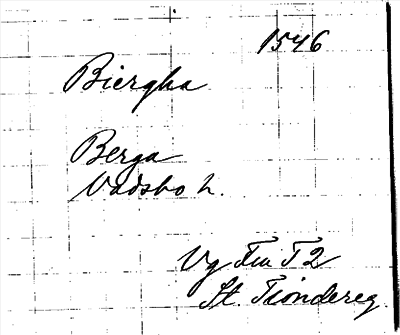 1546
Biergha
Berga
Vadsbo h.
Vg Fru T 2
St. Tiondereg